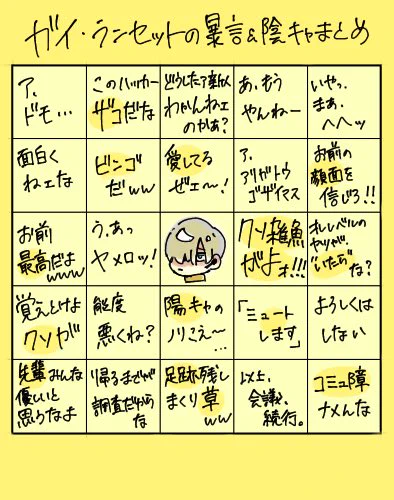 ガイ・ランセットの暴言&陰キャまとめ
ア、
ドモ…
このハッカー
ザコだな
どうしたァ新人
わかんねェ
のかぁ?
あ、もう
やんねー
いやっ、
まぁ、
へへッ
面白く
ねェな
ビンゴ
だww
愛してる
ぜェ〜!
ア、
アリガトウ
ゴザイマス
お前の
顔面を
信じろ!!
お前
最高だよ
www
う、あっ
ヤメロッ!
クソ雑魚
がよォ!!!
オレレベルの
ヤツが、
"いたら"
な?
覚えとけよ
クソが
態度
悪くね?
陽キャの
ノリこえ〜
…
「ミュート
します」
よろしくは
しない
先輩みんな
優しいと
思うなよ
帰るまでが
調査だからな
足跡残し
まくり草
ww
以上、
会議、
続行。
コミュ障
ナメんな